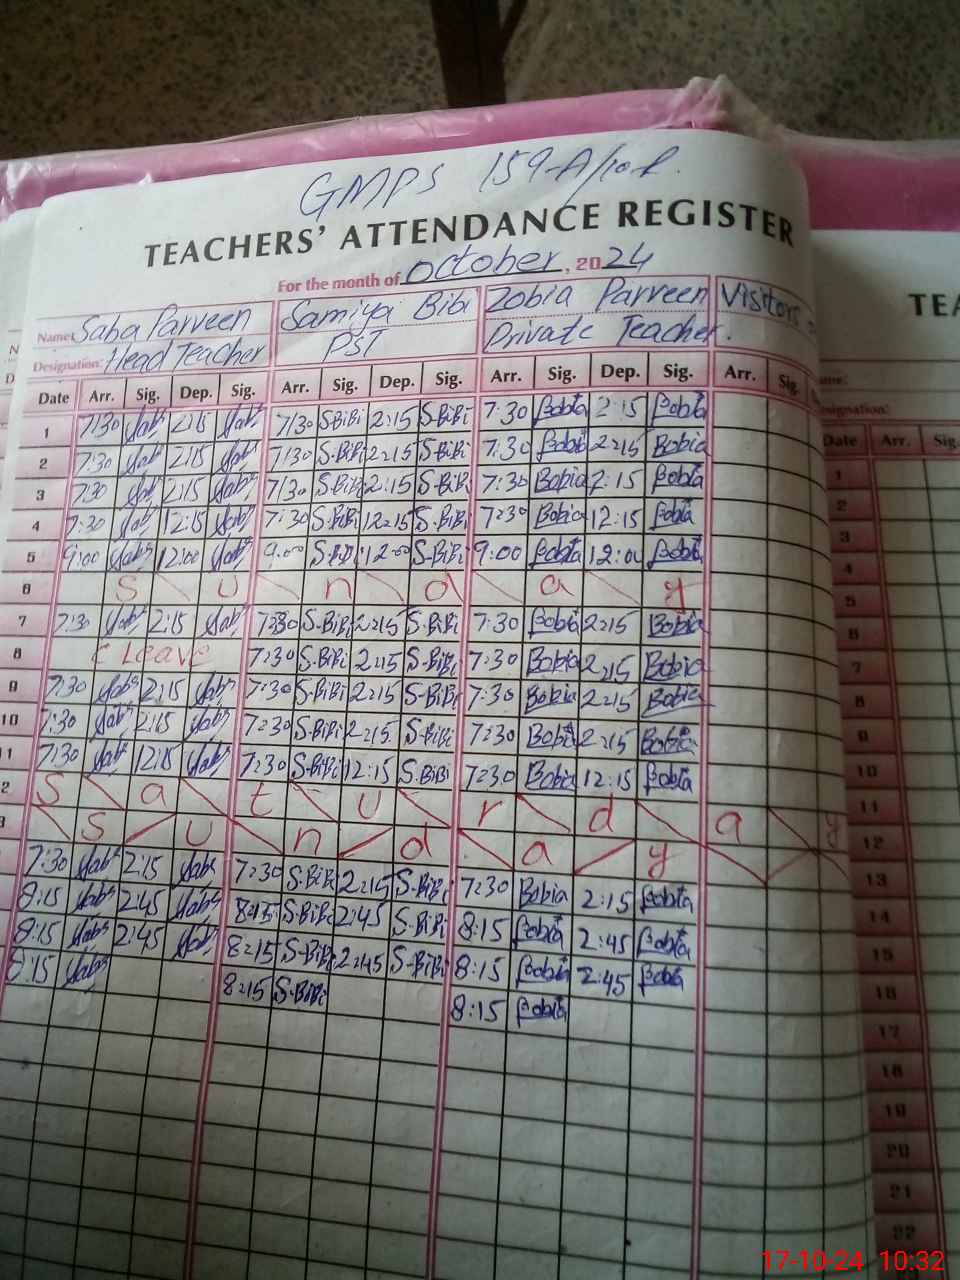 GMPS 159-A/10-R.
TEACHERS' ATTENDANCE REGISTER
For the month of October, 2024
Name: Saba Parveen Samiya Bibi Zobia Parveen Visitors
Designation: Head Teacher PST Private Teacher.
Date Arr. Sig. Dep. Sig. Arr. Sig. Dep. Sig. Arr. Sig. Dep. Sig. Arr. Sig.
1 7:30 Saba 2:15 Saba 7:30 S.BiBi 2:15 S.BiBi 7:30 Zobia 2:15 Zobia
2 7:30 Saba 2:15 Saba 7:30 S.BiBi 2:15 S.BiBi 7:30 Zobia 2:15 Zobia
3 7:30 Saba 2:15 Saba 7:30 S.BiBi 2:15 S.BiBi 7:30 Zobia 2:15 Zobia
4 7:30 Saba 12:15 Saba 7:30 S.BiBi 12:15 S.BiBi 7:30 Zobia 12:15 Zobia
5 9:00 Saba 12:00 Saba 9:00 S.BiBi 12:00 S.BiBi 9:00 Zobia 12:00 Zobia
6 S u n d a y
7 7:30 Saba 2:15 Saba 7:30 S.BiBi 2:15 S.BiBi 7:30 Zobia 2:15 Zobia
8 C Leave 7:30 S.BiBi 2:15 S.BiBi 7:30 Zobia 2:15 Zobia
9 7:30 Saba 2:15 Saba 7:30 S.BiBi 2:15 S.BiBi 7:30 Zobia 2:15 Zobia
10 7:30 Saba 2:15 Saba 7:30 S.BiBi 2:15 S.BiBi 7:30 Zobia 2:15 Zobia
11 7:30 Saba 12:15 Saba 7:30 S.BiBi 12:15 S.BiBi 7:30 Zobia 12:15 Zobia
2 S a t u r d a y
3 S u n d a y
7:30 Saba 2:15 Saba 7:30 S.BiBi 2:15 S.BiBi 7:30 Zobia 2:15 Zobia
8:15 Saba 2:45 Saba 8:15 S.BiBi 2:45 S.BiBi 8:15 Zobia 2:45 Zobia
8:15 Saba 2:45 Saba 8:15 S.BiBi 2:45 S.BiBi 8:15 Zobia 2:45 Zobia
8:15 Saba 8:15 S.BiBi 8:15 Zobia
TEA
Date Arr. Sig.
1
2
3
4
5
6
7
8
9
10
11
12
13
14
15
16
17
18
19
20
21
22
17-10-24 10:32